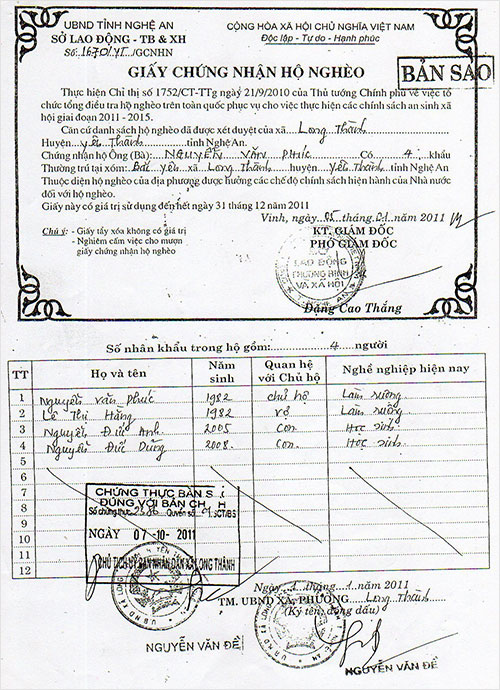 UBND TỈNH NGHỆ AN
SỞ LAO ĐỘNG - TB & XH
Số: /GCNHN
CỘNG HÒA XÃ HỘI CHỦ NGHĨA VIỆT NAM
Độc lập - Tự do - Hạnh phúc
GIẤY CHỨNG NHẬN HỘ NGHÈO
BẢN SAO
Thực hiện Chỉ thị số 1752/CT-TTg ngày 21/9/2010 của Thủ tướng Chính phủ về việc tổ
chức tổng điều tra hộ nghèo trên toàn quốc phục vụ cho việc thực hiện các chính sách an sinh xã
hội giai đoạn 2011 - 2015.
Căn cứ danh sách hộ nghèo đã được xét duyệt của xã Long Thành
Huyện Yên Thành tỉnh Nghệ An.
Chứng nhận hộ Ông (Bà): NGUYỄN VĂN PHÚC Có 4 khẩu
Thường trú tại xóm: Bắc Yên xã Long Thành huyện Yên Thành tỉnh Nghệ An
Thuộc diện hộ nghèo của địa phương được hưởng các chế độ chính sách hiện hành của Nhà nước
đối với hộ nghèo.
Giấy này có giá trị sử dụng đến hết ngày 31 tháng 12 năm 2011
Vinh, ngày 05 tháng 01 năm 2011
Chú ý: - Giấy tẩy xóa không có giá trị
- Nghiêm cấm việc cho mượn
giấy chứng nhận hộ nghèo
KT. GIÁM ĐỐC
PHÓ GIÁM ĐỐC
SỞ
LAO ĐỘNG
THƯƠNG BINH
VÀ XÃ HỘI
Đặng Cao Thắng
Số nhân khẩu trong hộ gồm: 4 người
TT Họ và tên Năm sinh Quan hệ với Chủ hộ Nghề nghiệp hiện nay
1 Nguyễn Văn Phúc 1982 chủ hộ Làm ruộng
2 Lê Thị Hằng 1982 vợ Làm ruộng
3 Nguyễn Đức Anh 2005 Con Học sinh
4 Nguyễn Đức Dũng 2008 Con Học sinh
5
6
7
8
9
10
11
12
CHỨNG THỰC BẢN S
ĐÚNG VỚI BẢN CH H
Số chứng thực: 2586 Quyển số SCT/BS
NGÀY 07-10-2011
CHỦ TỊCH ỦY BAN NHÂN DÂN XÃ LONG THÀNH
NGUYỄN VĂN ĐỀ
Ngày 1 tháng 1 năm 2011
TM. UBND XÃ, PHƯỜNG Long Thành
(Ký tên, đóng dấu)
NGUYỄN VĂN ĐỀ